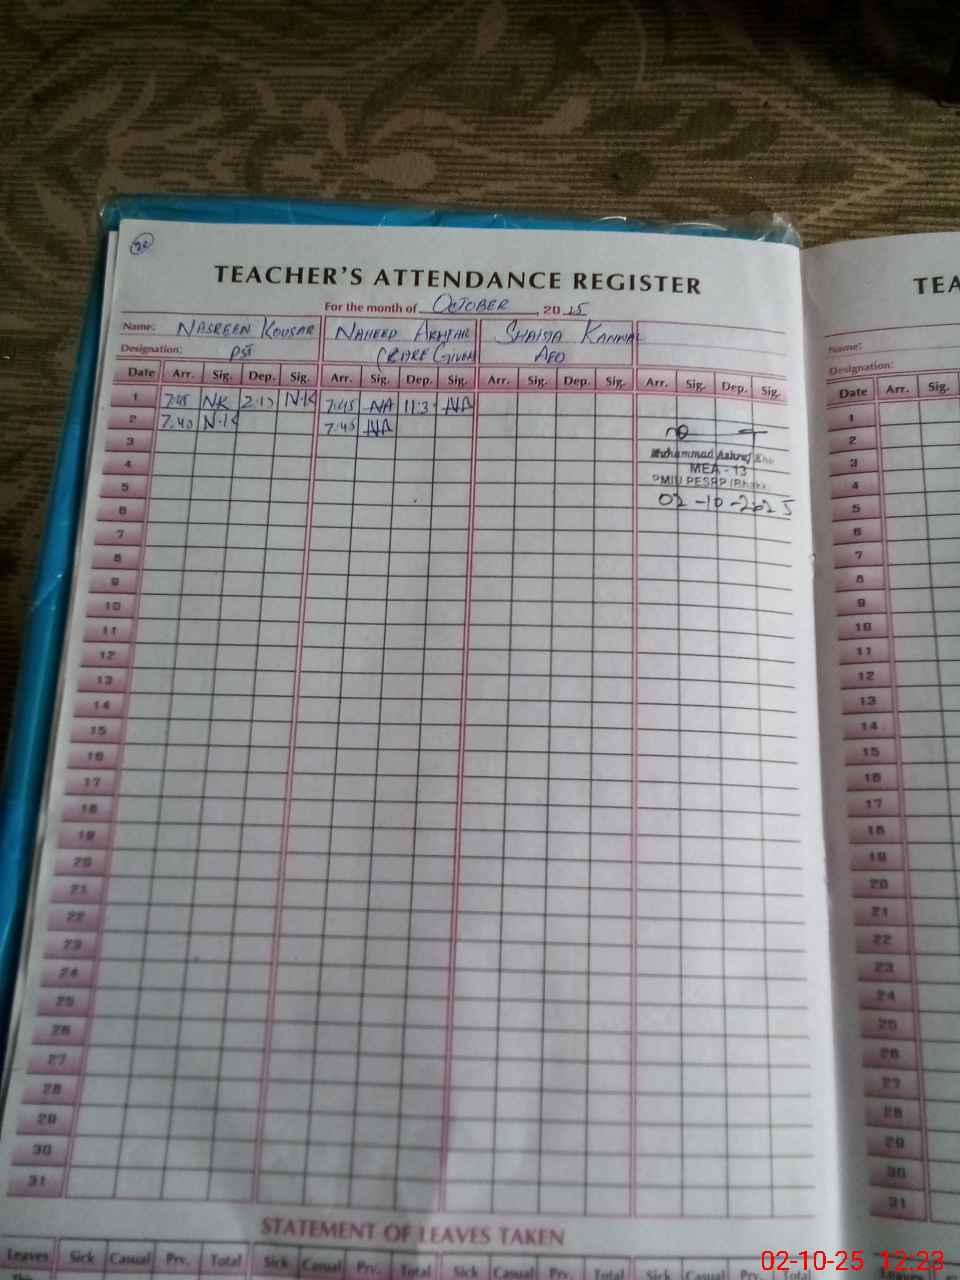 TEACHER'S ATTENDANCE REGISTER
For the month of OCTOBER, 2025
Name: NASREEN KOUSAR NAHEED AKHTAR SHAISTA KANWAL
Designation: PST (CARE GIVER AEO
Date Arr. Sig. Dep. Sig. Arr. Sig. Dep. Sig. Arr. Sig. Dep. Sig. Arr. Sig. Dep. Sig.
1 7:45 NK 2:15 N.K 7:45 NA 11:3 NA
2 7:40 N.K 7:45 NA
3
4
5
6
7
8
9
10
11
12
13
14
15
16
17
18
19
20
21
22
23
24
25
26
27
28
29
30
31
Muhammad Ashraf
MEA - 13
PMIU PESRP
02-10-2025
STATEMENT OF LEAVES TAKEN
Leaves Sick Casual Prv. Total Sick Casual Prv. Total Sick Casual Prv. Total Sick Casual Prv. Total
TEA
Name:
Designation:
Date Arr. Sig.
1
2
3
4
5
6
7
8
9
10
11
12
13
14
15
16
17
18
19
20
21
22
23
24
25
26
27
28
29
30
31
02-10-25 12:23